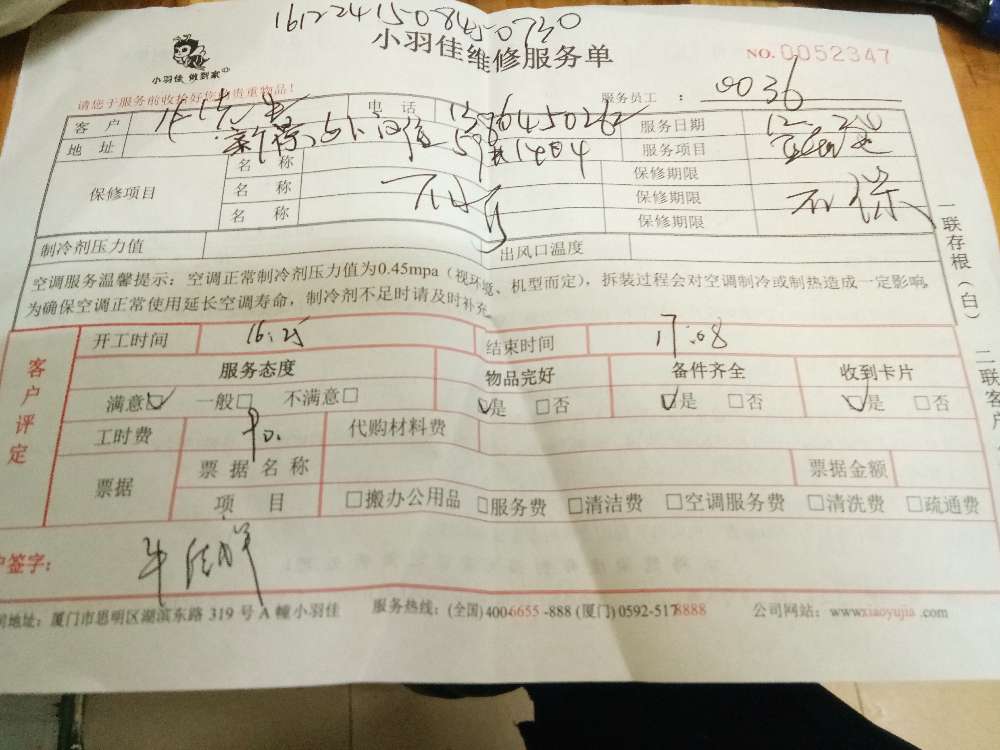 1612241508450730
小羽佳维修服务单
小羽佳 做到家
NO.0052347
请您于服务前收拾好您的贵重物品!
服务员工 : 0036
客 户 电 话 服务日期 12.24
地 址 服务项目
保修项目 名 称 保修期限
名 称 保修期限 不保
名 称 保修期限
制冷剂压力值 出风口温度
空调服务温馨提示:空调正常制冷剂压力值为0.45mpa(视环境、机型而定),拆装过程会对空调制冷或制热造成一定影响,
为确保空调正常使用延长空调寿命,制冷剂不足时请及时补充。
一联存根(白)
二联客户
客户评定
开工时间 16:25 结束时间 17:08
服务态度 物品完好 备件齐全 收到卡片
满意☑ 一般□ 不满意□ ☑是 □否 ☑是 □否 ☑是 □否
工时费 90. 代购材料费
票据 票据名称 票据金额
项 目 □搬办公用品 □服务费 □清洁费 □空调服务费 □清洗费 □疏通费
户签字:
司地址:厦门市思明区湖滨东路 319 号 A 幢小羽佳 服务热线:(全国)4006655-888 (厦门)0592-5178888 公司网站:www.xiaoyujia.com